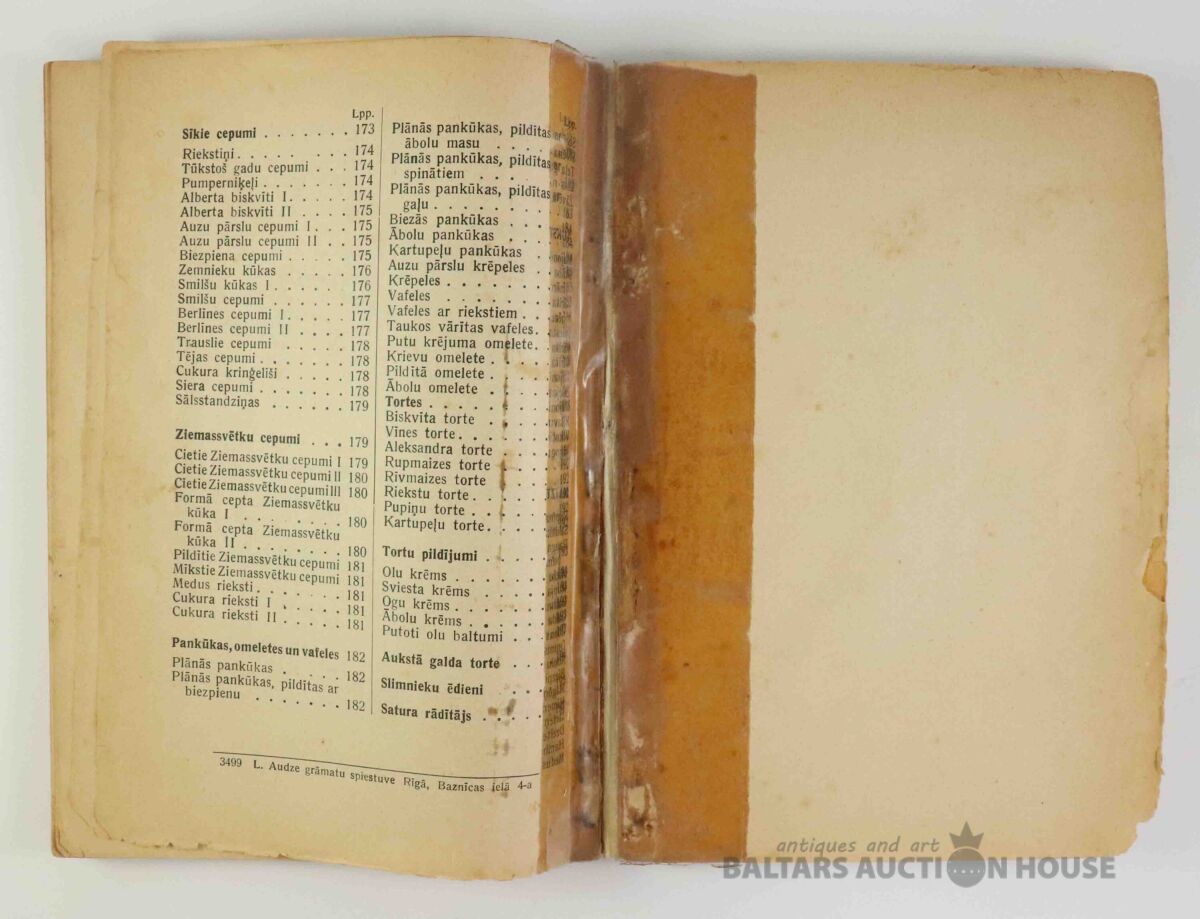 Lpp.
Sīkie cepumi . . . . . . . 173
Riekstiņi . . . . . . . . 174
Tūkstoš gadu cepumi . . . 174
Pumperniķeļi . . . . . . . 174
Alberta biskvīti I. . . . . . 174
Alberta biskvīti II . . . . . 175
Auzu pārslu cepumi I . . . 175
Auzu pārslu cepumi II . . 175
Biezpiena cepumi . . . . . 175
Zemnieku kūkas . . . . . 176
Smilšu kūkas I . . . . . . 176
Smilšu cepumi . . . . . . 177
Berlines cepumi I . . . . . 177
Berlines cepumi II . . . . 177
Trauslie cepumi . . . . . 178
Tējas cepumi . . . . . . . 178
Cukura kriņģelīši . . . . . 178
Siera cepumi . . . . . . . 178
Sālsstandziņas . . . . . . 179
Ziemassvētku cepumi . . . 179
Cietie Ziemassvētku cepumi I 179
Cietie Ziemassvētku cepumi II 180
Cietie Ziemassvētku cepumi III 180
Formā cepta Ziemassvētku
kūka I . . . . . . . . 180
Formā cepta Ziemassvētku
kūka II . . . . . . . . 180
Pildītie Ziemassvētku cepumi 181
Mīkstie Ziemassvētku cepumi 181
Medus rieksti . . . . . . . 181
Cukura rieksti I . . . . . 181
Cukura rieksti II . . . . . 181
Pankūkas, omeletes un vafeles 182
Plānās pankūkas . . . . . 182
Plānās pankūkas, pildītas ar
biezpienu . . . . . . . 182
Lpp.
Plānās pankūkas, pildītas
ābolu masu . . . . .
Plānās pankūkas, pildītas
spinātiem . . . .
Plānās pankūkas, pildītas
gaļu . . . . . . . .
Biezās pankūkas . . . .
Ābolu pankūkas . . . .
Kartupeļu pankūkas . .
Auzu pārslu krēpeles . .
Krēpeles . . . . . . .
Vafeles . . . . . . .
Vafeles ar riekstiem . . .
Taukos vārītas vafeles. .
Putu krējuma omelete. .
Krievu omelete . . . .
Pildītā omelete . . . .
Ābolu omelete . . . .
Tortes . . . . . . . .
Biskvīta torte . . . .
Vīnes torte . . . . . .
Aleksandra torte . . . .
Rupmaizes torte . . . .
Rīvmaizes torte . . . .
Riekstu torte . . . . .
Pupiņu torte . . . . .
Kartupeļu torte . . . .
Tortu pildījumi . . . .
Olu krēms . . . . . .
Sviesta krēms . . . . .
Ogu krēms . . . . . .
Ābolu krēms . . . . .
Putoti olu baltumi . . .
Aukstā galda torte . . .
Slimnieku ēdieni . . .
Satura rādītājs . . . .
3499 L. Audze grāmatu spiestuve Rīgā, Baznīcas ielā 4-a
antiques and art
BALTARS AUCTION HOUSE